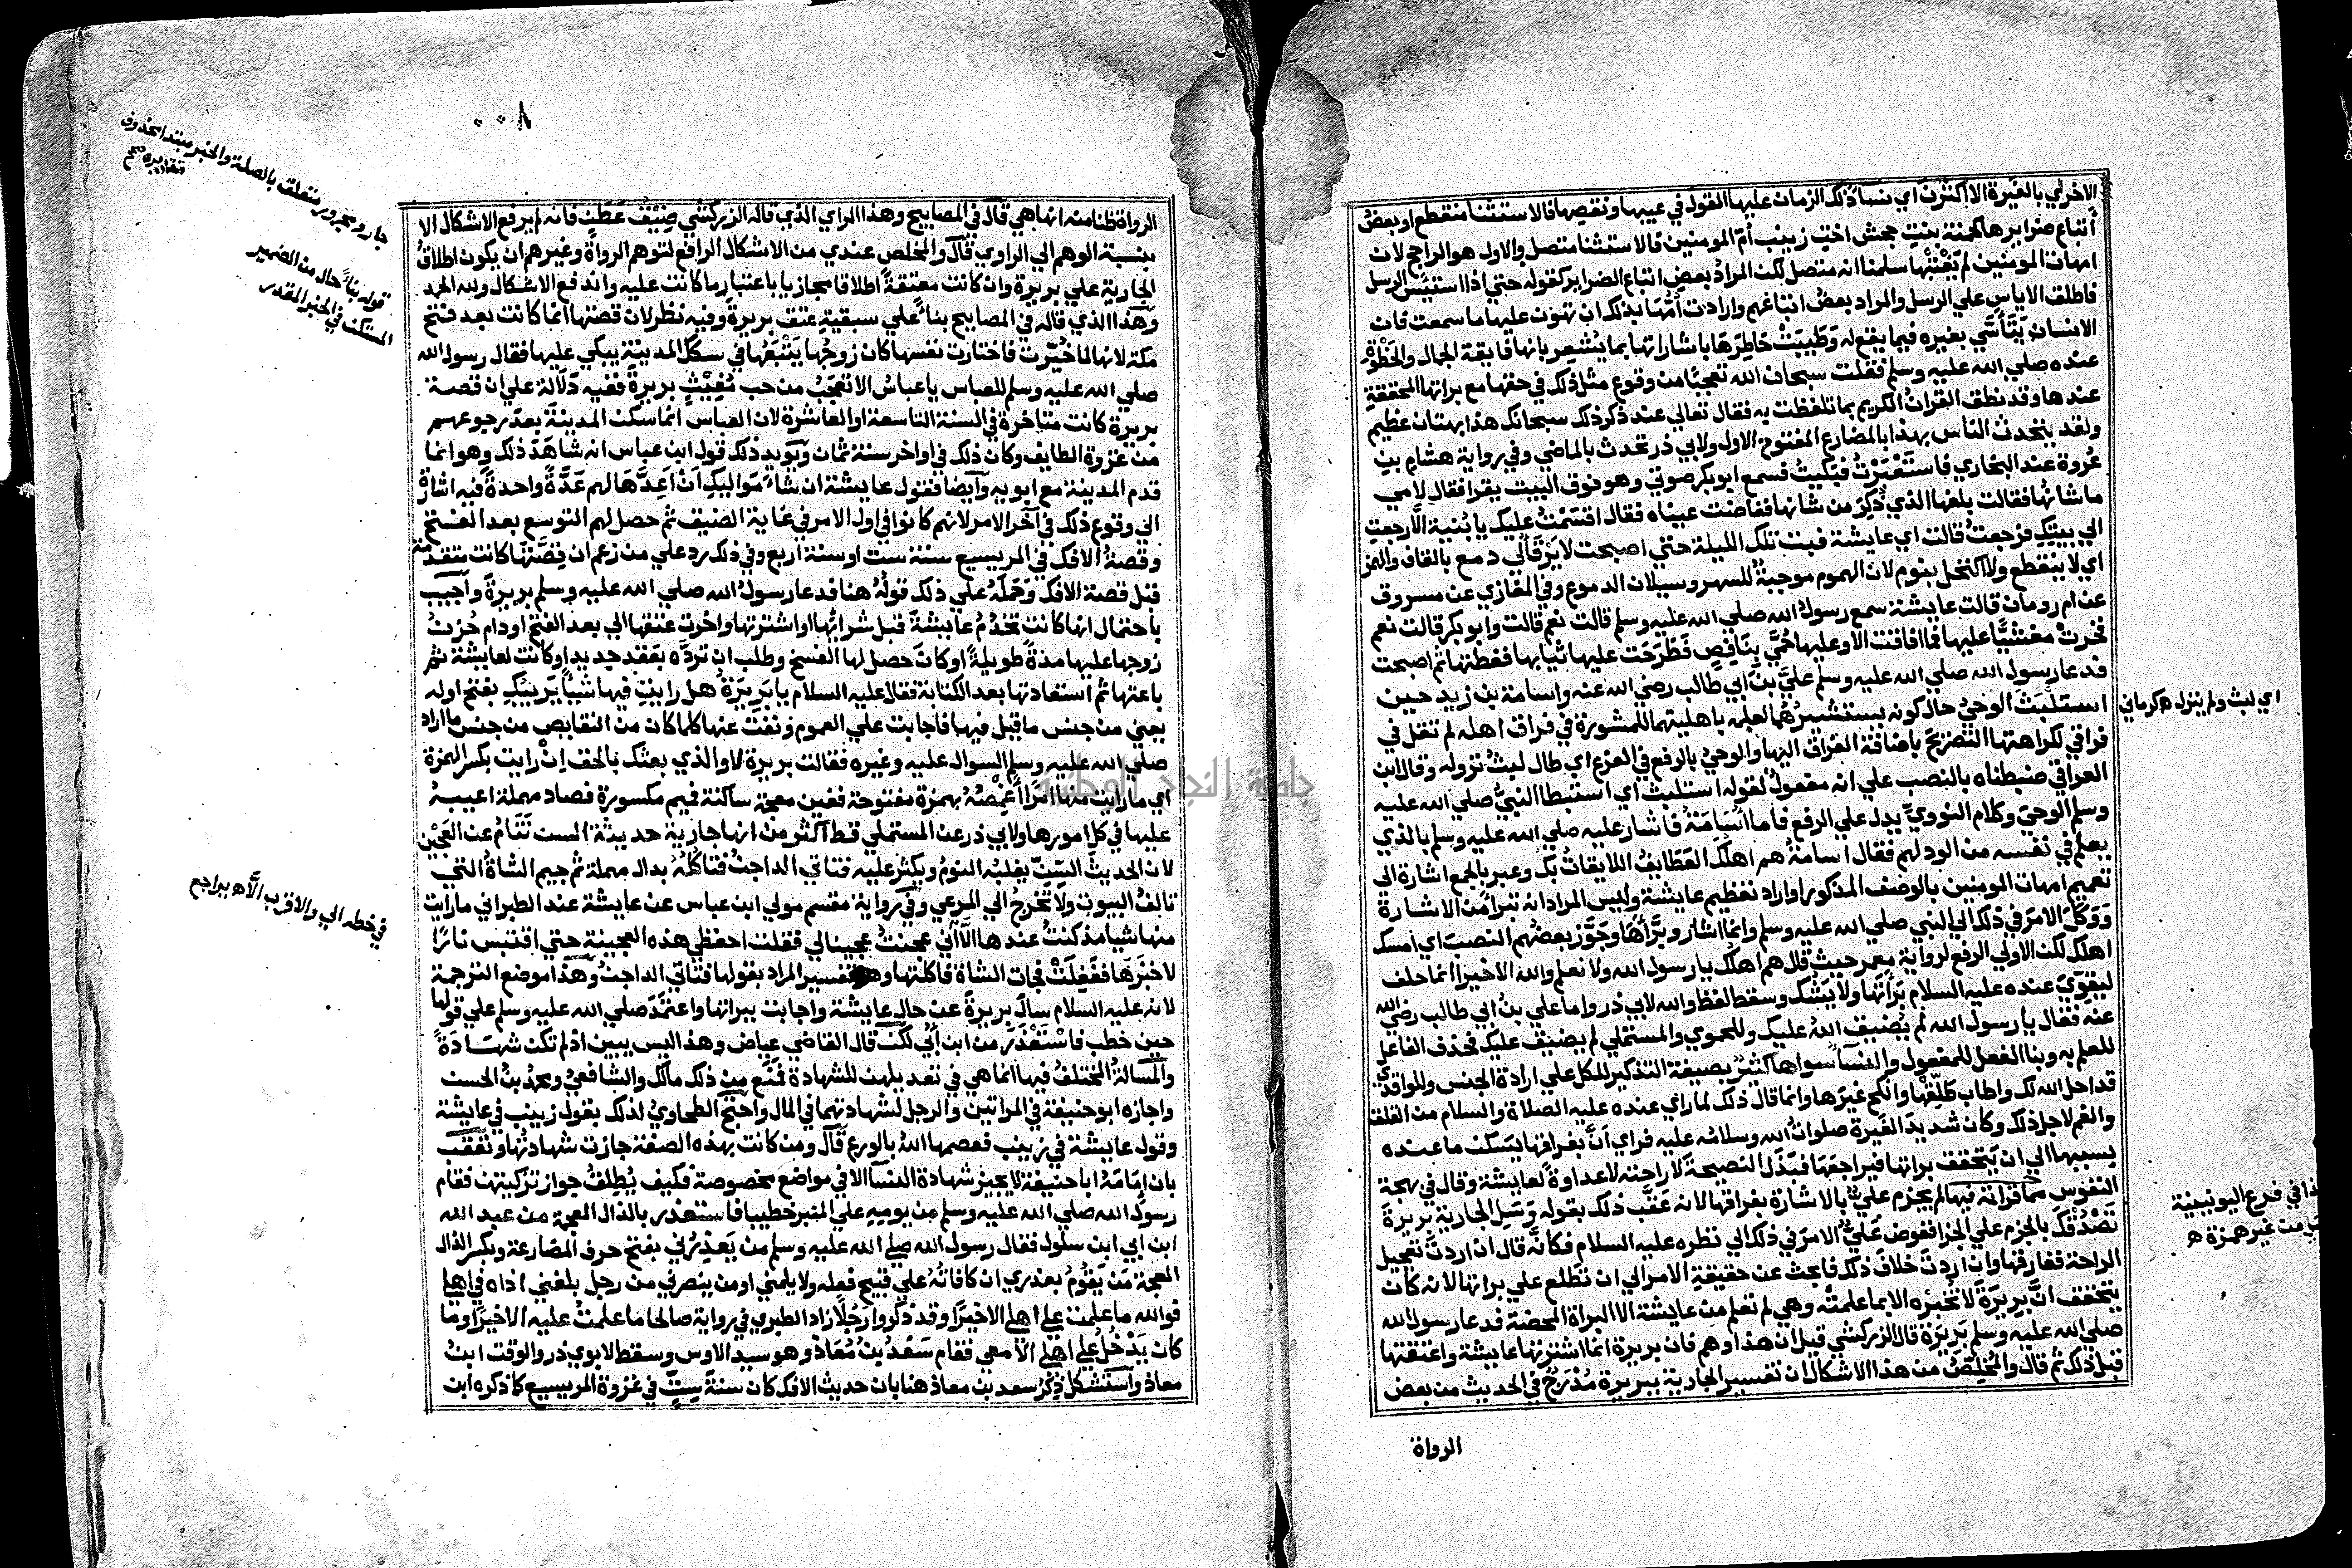 الاخري بالغيرة الا اكثرن اي نسا ذلك الزمان عليها القول في عيبها ونقصها فالاستثنا منقطع او بعض
أتباع ضرايرها كحمنة بنت جحش اخت زينب أم المومنين فالاستثنا متصل والاول هو الراجح لان
امهات المومنين لم يعبنها سلمنا انه متصل لكن المراد بعض اتباع الضراير كقوله حتي اذا استيئس الرسل
فاطلق الاياس علي الرسل والمراد بعض اتباعهم وارادت أمها بذلك ان تهون عليها ما سمعت فان
الانسان يتأسي بغيره فيما يقع له وطيبت خاطرها باشارتها بما يشعر بانها فايقة الجمال والحظوة
عنده صلي الله عليه وسلم فقلت سبحان الله تعجبا من وقوع مثل ذلك في حقها مع براتها المحققة
عندها وقد نطق القران الكريم بما تلفظت به فقال تعالي عند ذكر ذلك سبحانك هذا بهتان عظيم
ولقد يتحدث الناس بهذا بالمضارع المفتوح الاول ولابي ذر تحدث بالماضي وفي رواية هشام بن
عروة عند البخاري فاستعبرت فبكيت فسمع ابو بكر صوتي وهو فوق البيت يقرا فقال لامي
ما شانها فقالت بلغها الذي ذكر من شانها ففاضت عيناه فقال اقسمت عليك يا بنية الا رجعت
الي بيتك فرجعت قالت اي عايشة فبت تلك الليلة حتي اصبحت لا يرقا لي دمع بالقاف والهمز
اي لا ينقطع ولا اكتحل بنوم لان الهموم موجبة للسهر وسيلان الدموع وفي المغازي عن مسروق
عن ام رومان قالت عايشة سمع رسول الله صلي الله عليه وسلم قالت نعم قالت وابو بكر قالت نعم
فخرت مغشيا عليها فما افاقت الا وعليها حمي بنافض فطرحت عليها ثيابها فغطتها ثم اصبحت
فدعا رسول الله صلي الله عليه وسلم علي بن ابي طالب رضي الله عنه واسامة بن زيد حين
استلبث الوحي حال كونه يستشيرهما لعلمه باهليتهما للمشورة في فراق اهله لم تقل في
فراقي لكراهتها التصريح باضافة الفراق اليها والوحي بالرفع في الفرع اي طال لبث نزوله وقال ابن
العراقي ضبطناه بالنصب علي انه مفعول لقوله استلبث اي استبطا النبي صلي الله عليه
وسلم الوحي وكلام النووي يدل علي الرفع فاما اسامة فاشار عليه صلي الله عليه وسلم بالذي
يعلم في نفسه من الود لهم فقال اسامة هم اهلك العفايف اللايقات بك وعبر بالجمع اشارة الي
تعميم امهات المومنين بالوصف المذكور او اراد تعظيم عايشة وليس المراد انه تبرا من الاشارة
ووكل الامر في ذلك الي النبي صلي الله عليه وسلم وانما اشار وبرأها وجوز بعضهم النصب اي امسك
اهلك لكن الاولي الرفع لرواية معمر حيث قال هم اهلك يا رسول الله ولا نعلم والله الا خيرا انما حلف
ليقوي عنده عليه السلام برأتها ولا يشك وسقط لفظ والله لابي ذر واما علي بن ابي طالب رضي الله
عنه فقال يا رسول الله لم يضيق الله عليك وللحموي والمستملي لم يضيق عليك بحذف الفاعل
للعلم به وبنا الفعل للمفعول والنسآ سواها كثير بصيغة التذكير للكل علي ارادة الجنس وللواقدي
قد احل الله لك واطاب طلقها وانكح غيرها وانما قال ذلك لما راي عنده عليه الصلاة والسلام من القلق
والغم لاجل ذلك وكان شديد الغيرة صلوات الله وسلامه عليه فراي أن بفراقها يسكن ما عنده
بسببها الي ان يتحقق براتها فيراجعها فبذل النصيحة لاراحته لا عداوة لعايشة وقال في بهجة
النفوس مما قراته فيها لم يجزم علي بالاشارة بفراقها لانه عقب ذلك بقوله وسل الجارية بريرة
تصدقك بالجزم علي الجزا ففوض علي الامر في ذلك الي نظره عليه السلام فكانه قال ان اردت تعجيل
الراحة ففارقها وان اردت خلاف ذلك فابحث عن حقيقة الامر الي ان تطلع علي براتها لانه كان
يتحقق ان بريرة لا تخبره الا بما علمته وهي لم تعلم من عايشة الا البراة المحضة فدعا رسول الله
صلي الله عليه وسلم بريرة قال الزركشي قيل ان هذا وهم فان بريرة انما اشترتها عايشة واعتقتها
قبل ذلك ثم قال والمخلص من هذا الاشكال ان تفسير الجارية ببريرة مدرج في الحديث من بعض
الرواة
اي لبث ولم ينزل ه كرماني
ذا في فرع اليونينية
من غير همزة ه
٠٠٨
الرواة ظنا منه انها هي قال في المصابيح وهذا الراي الذي قاله الزركشي ضيق عطن فانه لم يرفع الاشكال الا
بنسبة الوهم الي الراوي قال والمخلص عندي من الاشكال الرافع لتوهم الرواة وغيرهم ان يكون اطلاق
الجارية علي بريرة وان كانت معتقة اطلاقا مجازيا باعتبار ما كانت عليه واندفع الاشكال ولله الحمد
وهذا الذي قاله في المصابيح بناء علي سبقية عتق بريرة وفيه نظر لان قصتها انما كانت بعد فتح
مكة لانها لما خيرت فاختارت نفسها كان زوجها يتبعها في سكك المدينة يبكي عليها فقال رسول الله
صلي الله عليه وسلم للعباس يا عباس الا تعجب من حب مغيث بريرة ففيه دلالة علي ان قصة
بريرة كانت متاخرة في السنة التاسعة او العاشرة لان العباس انما سكن المدينة بعد رجوعهم
من غزوة الطايف وكان ذلك في اواخر سنة ثمان ويويد ذلك قول ابن عباس انه شاهد ذلك وهو انما
قدم المدينة مع ابويه وآيضا فقول عايشة ان شاء مواليك أن اعدها لهم عدة واحدة فيه اشارة
الي وقوع ذلك في آخر الامر لانهم كانوا في اول الامر في غاية الضيق ثم حصل لهم التوسع بعد الفتح
وقصة الافك في المريسيع سنة ست او سنة اربع وفي ذلك رد علي من زعم ان قصتها كانت متقدمة
قبل قصة الافك وحمله علي ذلك قوله هنا فدعا رسول الله صلي الله عليه وسلم بريرة وأجيب
باحتمال انها كانت تخدم عايشة قبل شرائها او اشترتها واخرت عتقها الي بعد الفتح او دام حزن
زوجها عليها مدة طويلة او كان حصل لها الفسخ وطلب ان ترده بعقد جديد او كانت لعايشة ثم
باعتها ثم استعادتها بعد الكتابة فقال عليه السلام يا بريرة هل رايت فيها شيئا يريبك بفتح اوله
يعني من جنس ما قيل فيها فاجابت علي العموم ونفت عنها كلما كان من النقايص من جنس ما اراد
صلي الله عليه وسلم السوال عليه وغيره فقالت بريرة لا والذي بعثك بالحق إن رايت بكسر الهمزة
اي ما رايت منها امرا أغمصه بهمزة مفتوحة فغين معجمة ساكنة فميم مكسورة فصاد مهملة اعيبه
عليها في كل امورها ولابي ذر عن المستملي قط اكثر من انها جارية حديثة السن تنام عن العجين
لان الحديث السن يغلبه النوم ويكثر عليه فتاتي الداجن فتاكله بدال مهملة ثم جيم الشاة التي
تالف البيوت ولا تخرج الي المرعي وفي رواية مقسم مولي ابن عباس عن عايشة عند الطبراني ما رايت
منها شيا مذ كنت عندها الا اني عجنت عجينا لي فقلت احفظي هذه العجينة حتي اقتبس نارا
لاخبزها فغفلت فجات الشاة فاكلتها وهو تفسير المراد بقولها فتاتي الداجن وهذا موضع الترجمة
لانه عليه السلام سال بريرة عن حال عايشة واجابت ببراتها واعتمد صلي الله عليه وسلم علي قولها
حين خطب فاستعذر من ابن أبي لكن قال القاضي عياض وهذا ليس يبين اذ لم تكن شهادة
والمسالة المختلف فيها انما هي في تعديلهن للشهادة فمنع من ذلك مالك والشافعي ومحمد بن الحسن
واجازه ابو حنيفة في المراتين والرجل لشهادتهما في المال واحتج الطحاوي لذلك بقول زينب في عايشة
وقول عايشة في زينب فعصمها الله بالورع قال ومن كانت بهذه الصفة جازت شهادتها وتعقب
بان إمامه ابا حنيفة لا يجيز شهادة النسآ الا في مواضع مخصوصة فكيف يطلق جواز تزكيتهن فقام
رسول الله صلي الله عليه وسلم من يومه علي المنبر خطيبا فاستعذر بالذال المعجمة من عبد الله
ابن ابي ابن سلول فقال رسول الله صلي الله عليه وسلم من يعذرني بفتح حرف المضارعة وبكسر الذال
المعجمة من يقوم بعذري ان كافاته علي قبيح فعله ولا يلمني او من ينصرني من رجل بلغني اذاه في اهلي
فوالله ما علمت علي اهلي الا خيرا وقد ذكروا رجلا زاد الطبري في رواية صالحا ما علمت عليه الا خيرا وما
كان يدخل علي اهلي الا معي فقام سعد بن معاذ وهو سيد الاوس وسقط لابوي ذر والوقت ابن
معاذ واستشكل ذكر سعد بن معاذ هنا بان حديث الافك كان سنة ست في غزوة المريسيع كما ذكره ابن
جار ومجرور متعلق بالصلة والخبر مبتدا محذوف
تقديره صح
قوله بناء حال من الضمير
المستكن في الخبر المقدر
في خطه الي والاقرب الا ه براجع
جامعة النجاح الوطنية